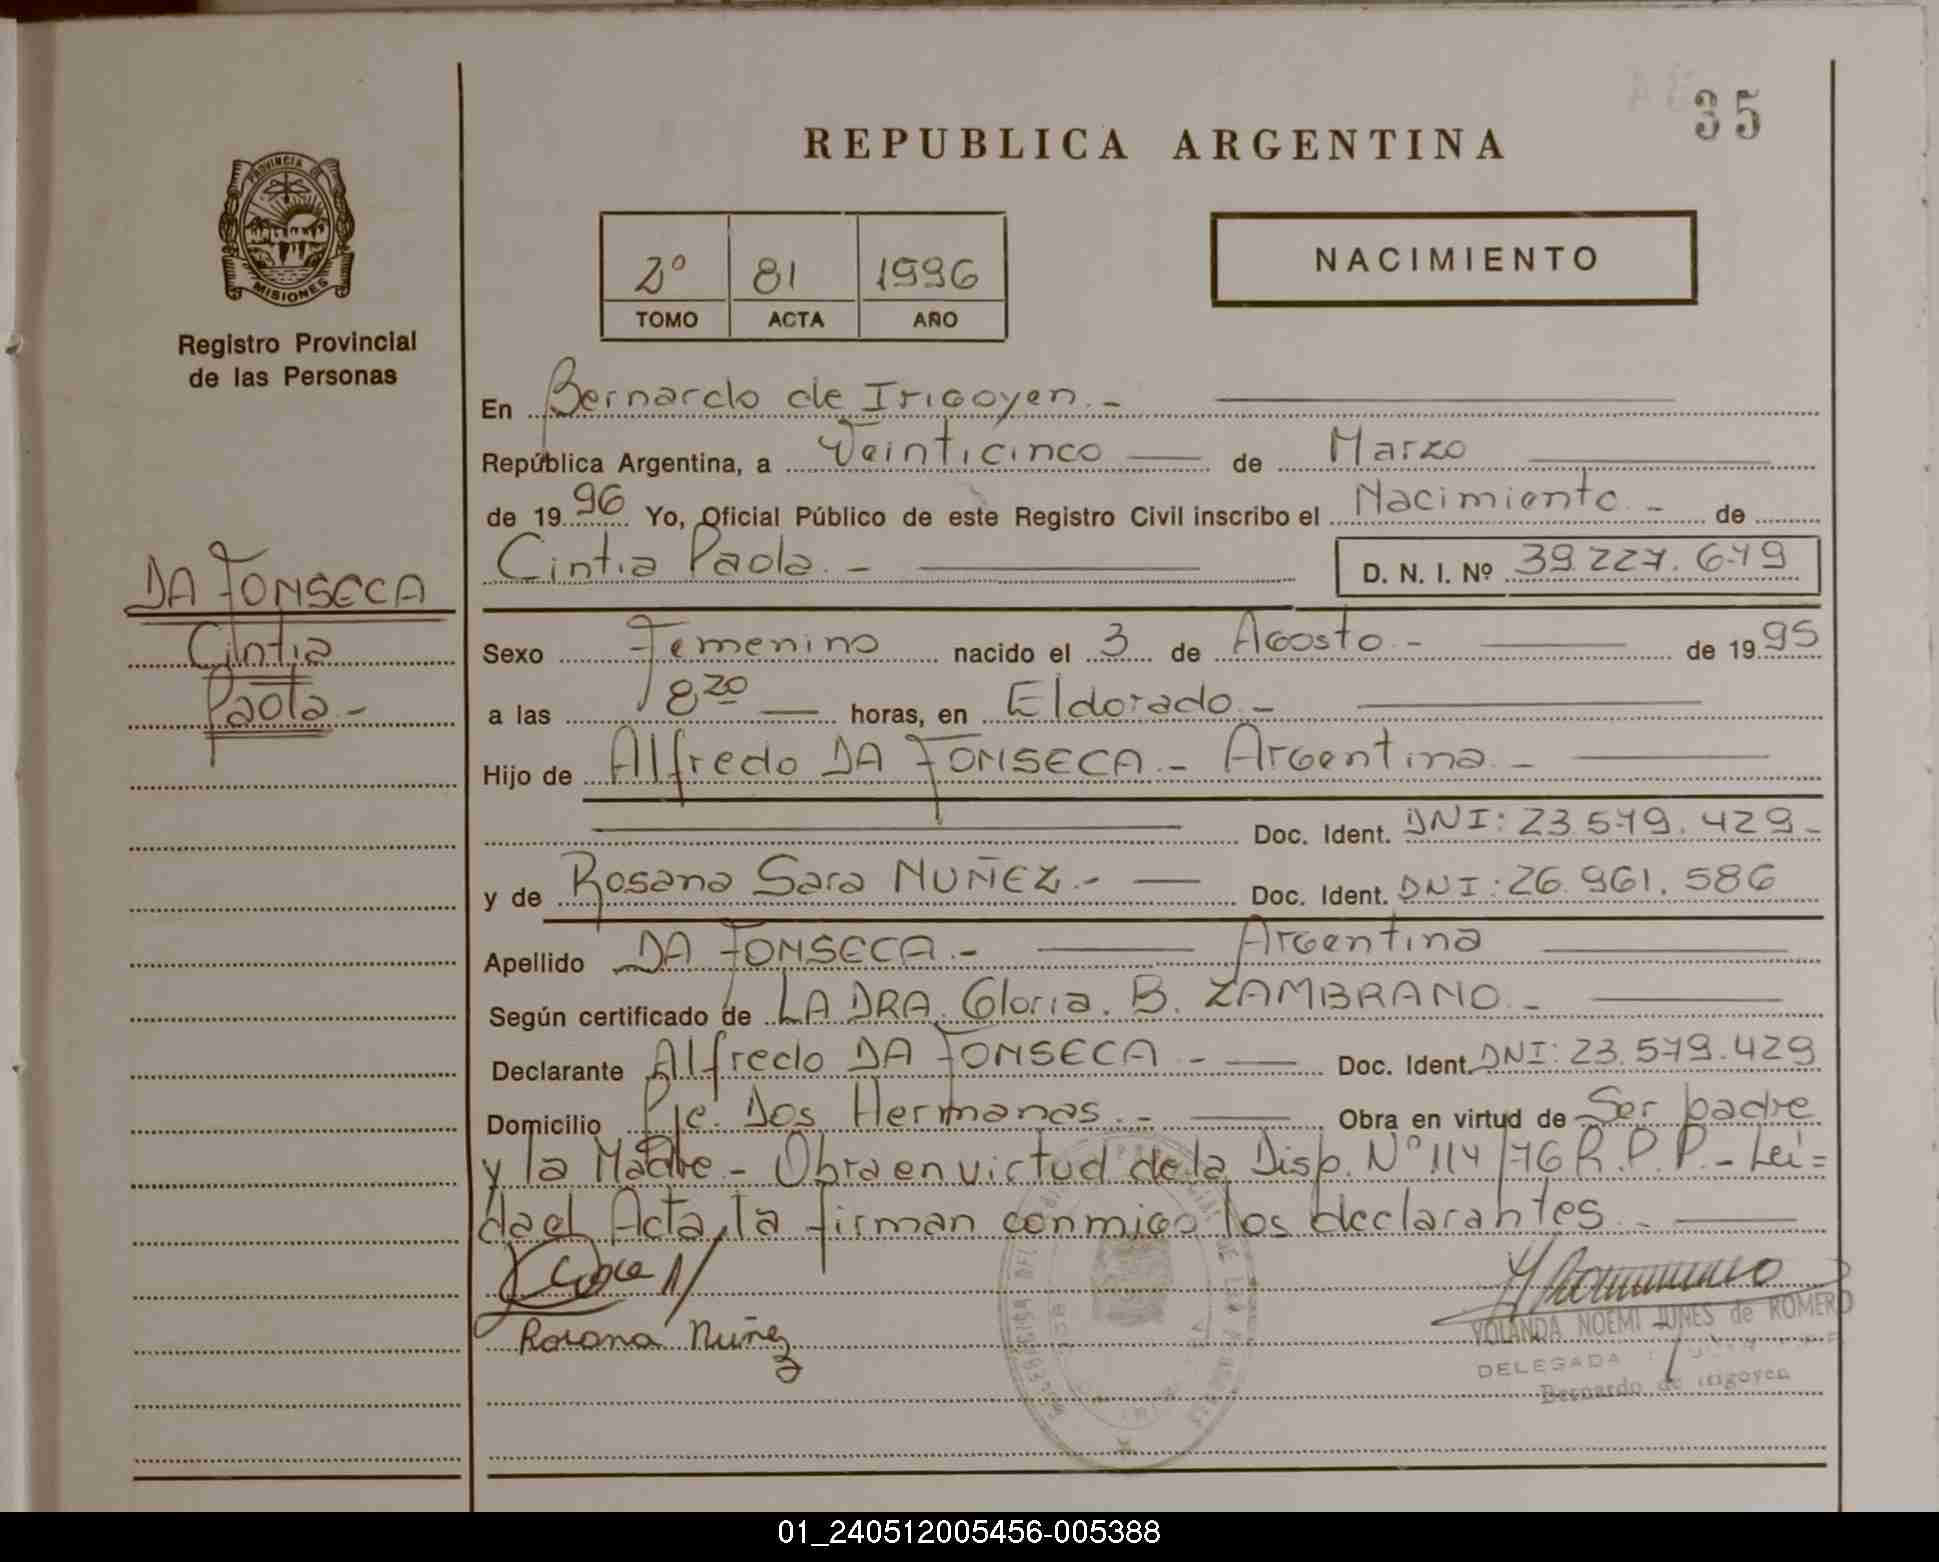 35
REPUBLICA ARGENTINA
PROVINCIA DE
MISIONES
Registro Provincial
de las Personas
2º 81 1996
TOMO ACTA AÑO
NACIMIENTO
En Bernardo de Irigoyen.-
República Argentina, a Veinticinco de Marzo
de 1996 Yo, Oficial Público de este Registro Civil inscribo el Nacimiento.- de
Cintia Paola.- D. N. I. Nº 39.227.679
DA FONSECA
Cintia
Paola.-
Sexo Femenino nacido el 3 de Agosto.- de 1995
a las 8,20 horas, en Eldorado.-
Hijo de Alfredo DA FONSECA.- Argentina.-
Doc. Ident. DNI: 23.579.429.-
y de Rosana Sara NUÑEZ.- Doc. Ident. DNI: 26.961.586
Apellido DA FONSECA.- Argentina
Según certificado de LA DRA. Gloria. B. ZAMBRANO.-
Declarante Alfredo DA FONSECA.- Doc. Ident. DNI: 23.579.429
Domicilio Pje. Dos Hermanas.- Obra en virtud de Ser padre
y la Madre.- Obra en virtud de la Disp. Nº 114/76 R.P.P.- Lei=
da el Acta, la firman conmigo los declarantes.-
Rosana Nuñez
YOLANDA NOEMI JUNES de ROMERO
DELEGADA
Bernardo de Irigoyen
01_240512005456-005388